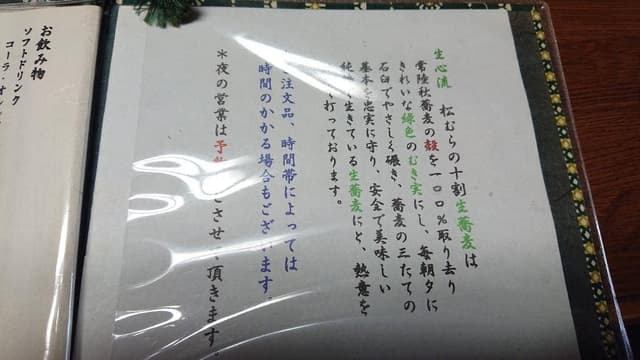 生心流 松むらの十割生蕎麦は
常陸秋蕎麦の殻を一〇〇%取り去り
きれいな緑色のむき実にし、毎朝夕に
石臼でやさしく碾き、蕎麦の三たての
基本を忠実に守り、安全で美味しい
生きている生蕎麦にと、熱意を
打っております。
注文品、時間帯によっては
時間のかかる場合もございます。
*夜の営業は予約とさせて頂きます。
お飲み物
ソフトドリンク
コーラ・オレ